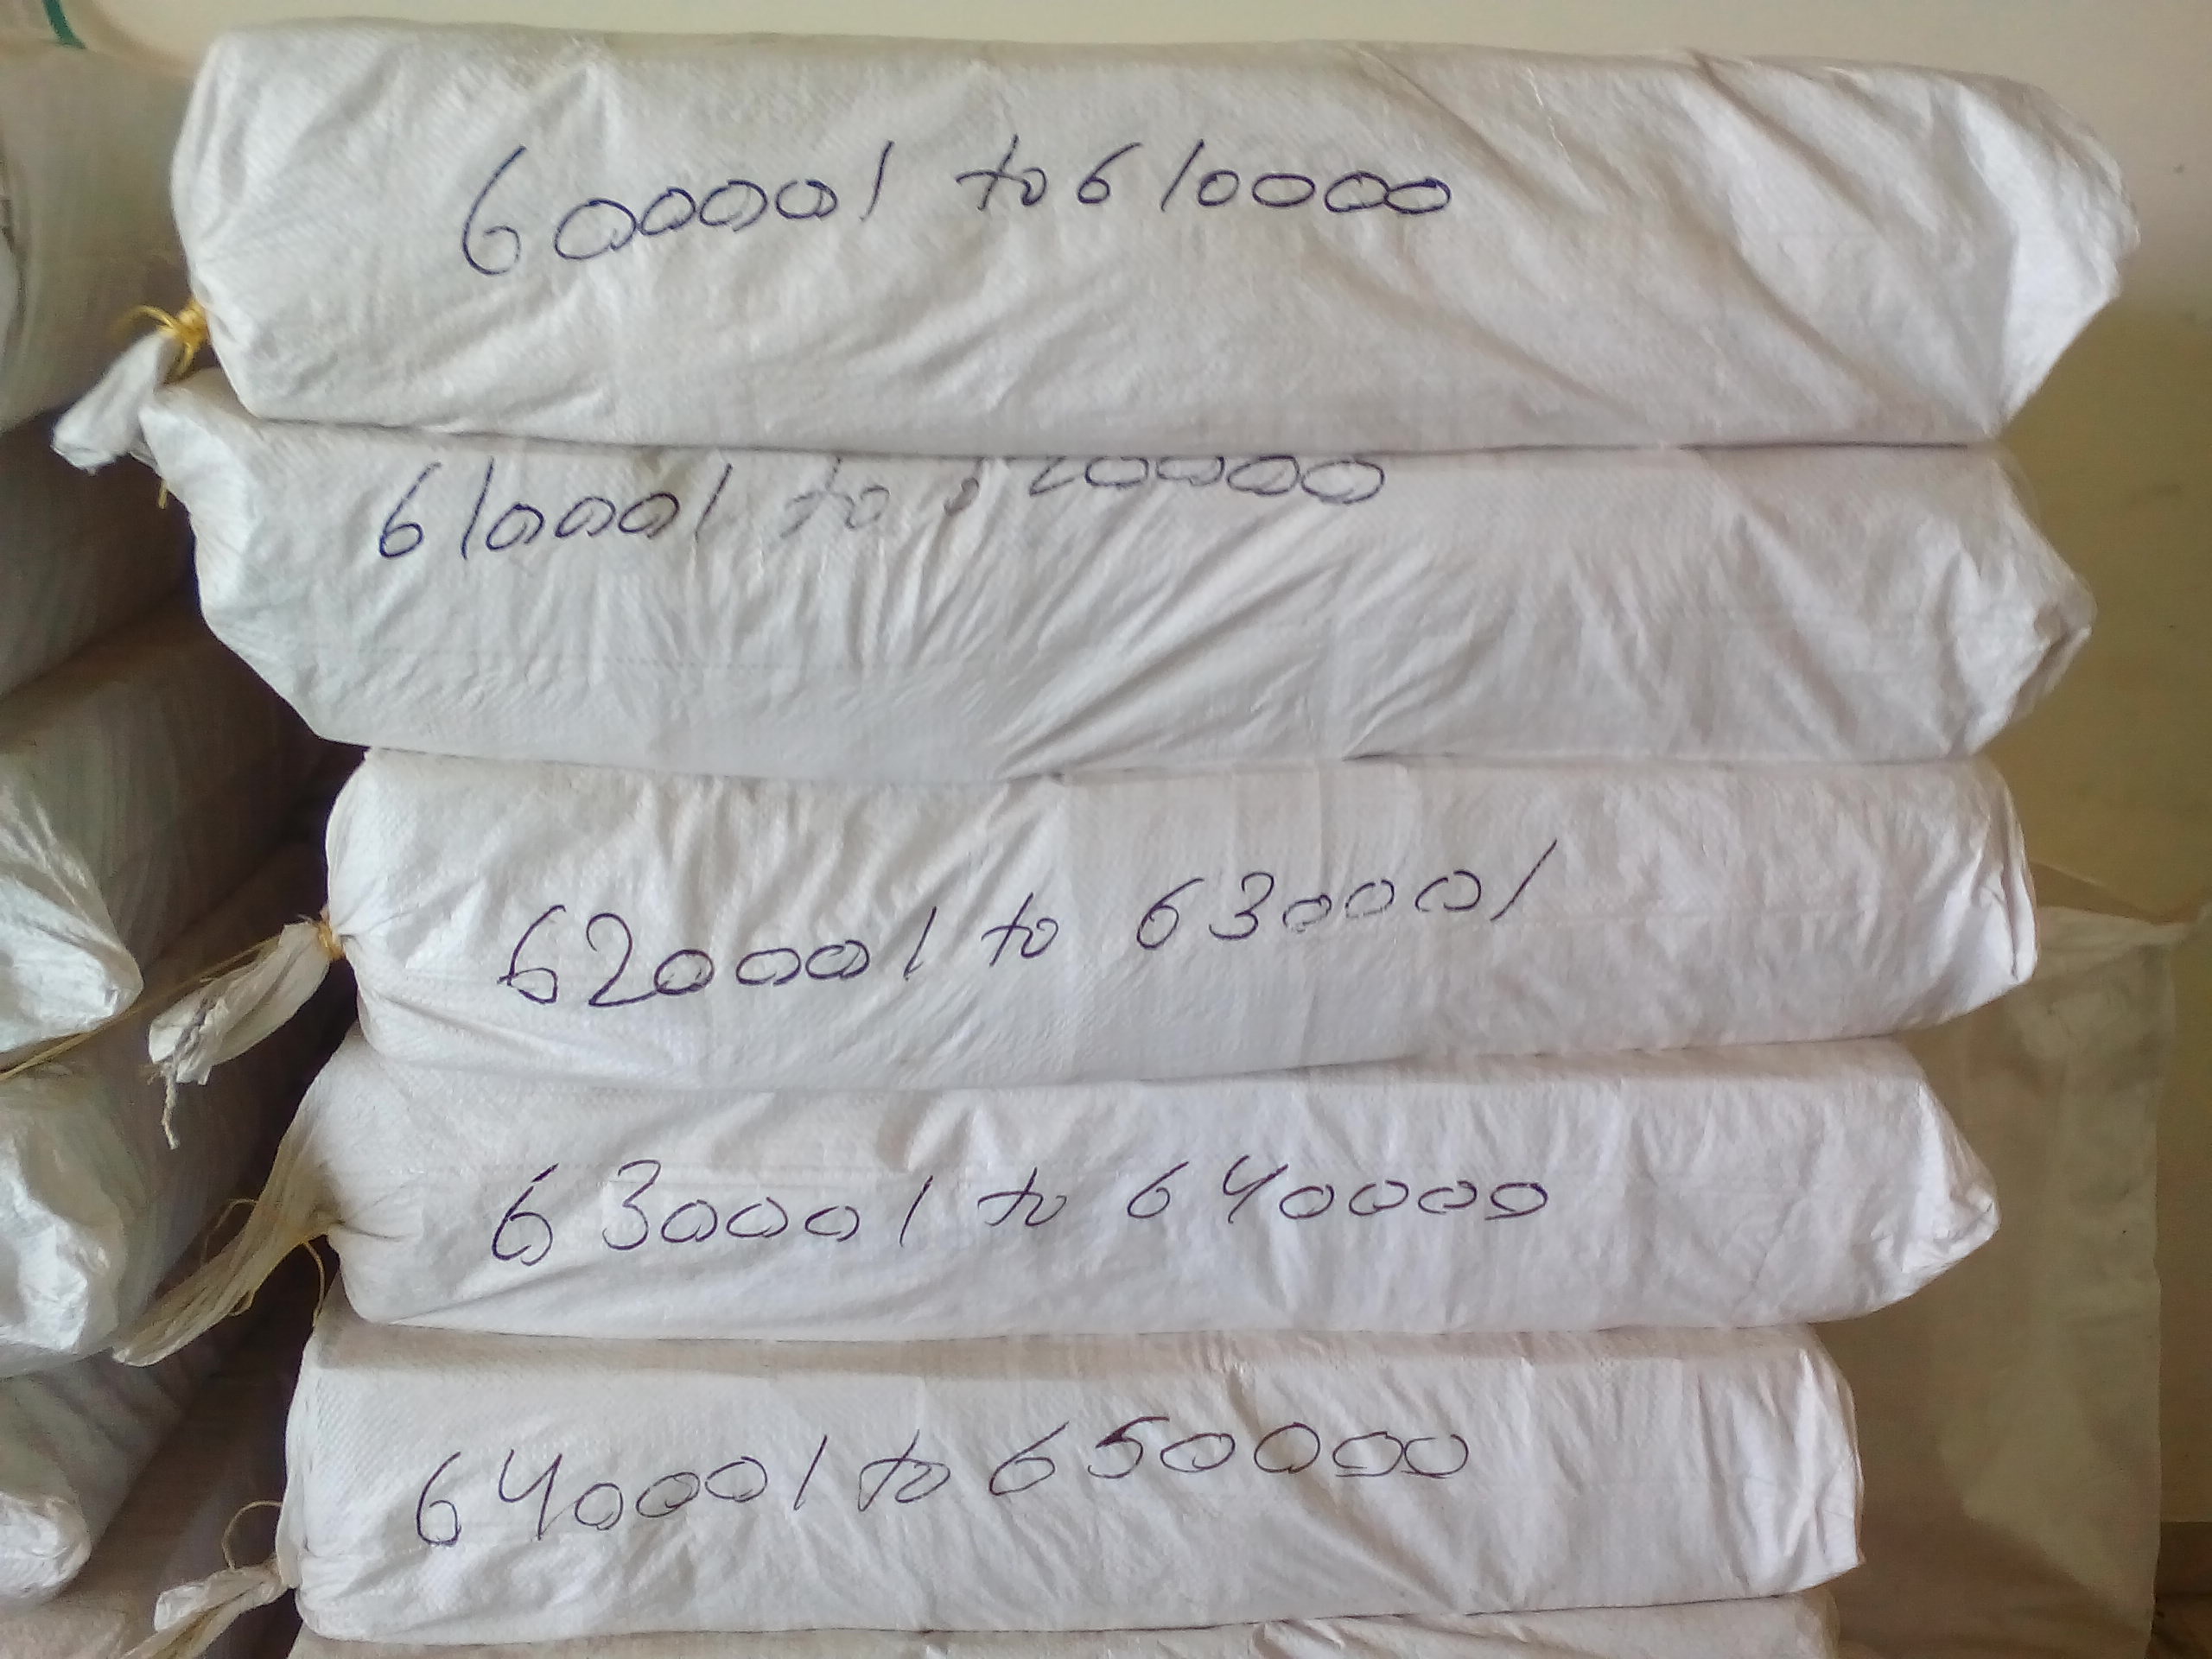 600001 to 610000
610001 to
620001 to 630001
630001 to 640000
640001 to 650000